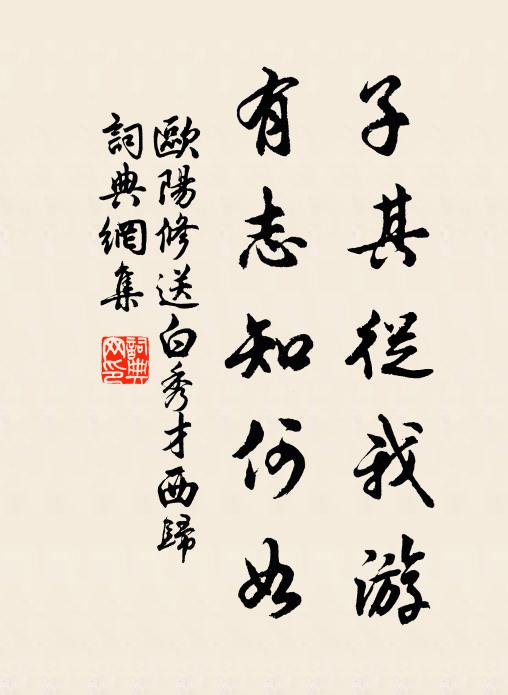 子其從我游
有志知何如
歐陽修送白秀才西歸
詞典網集
詞典網印